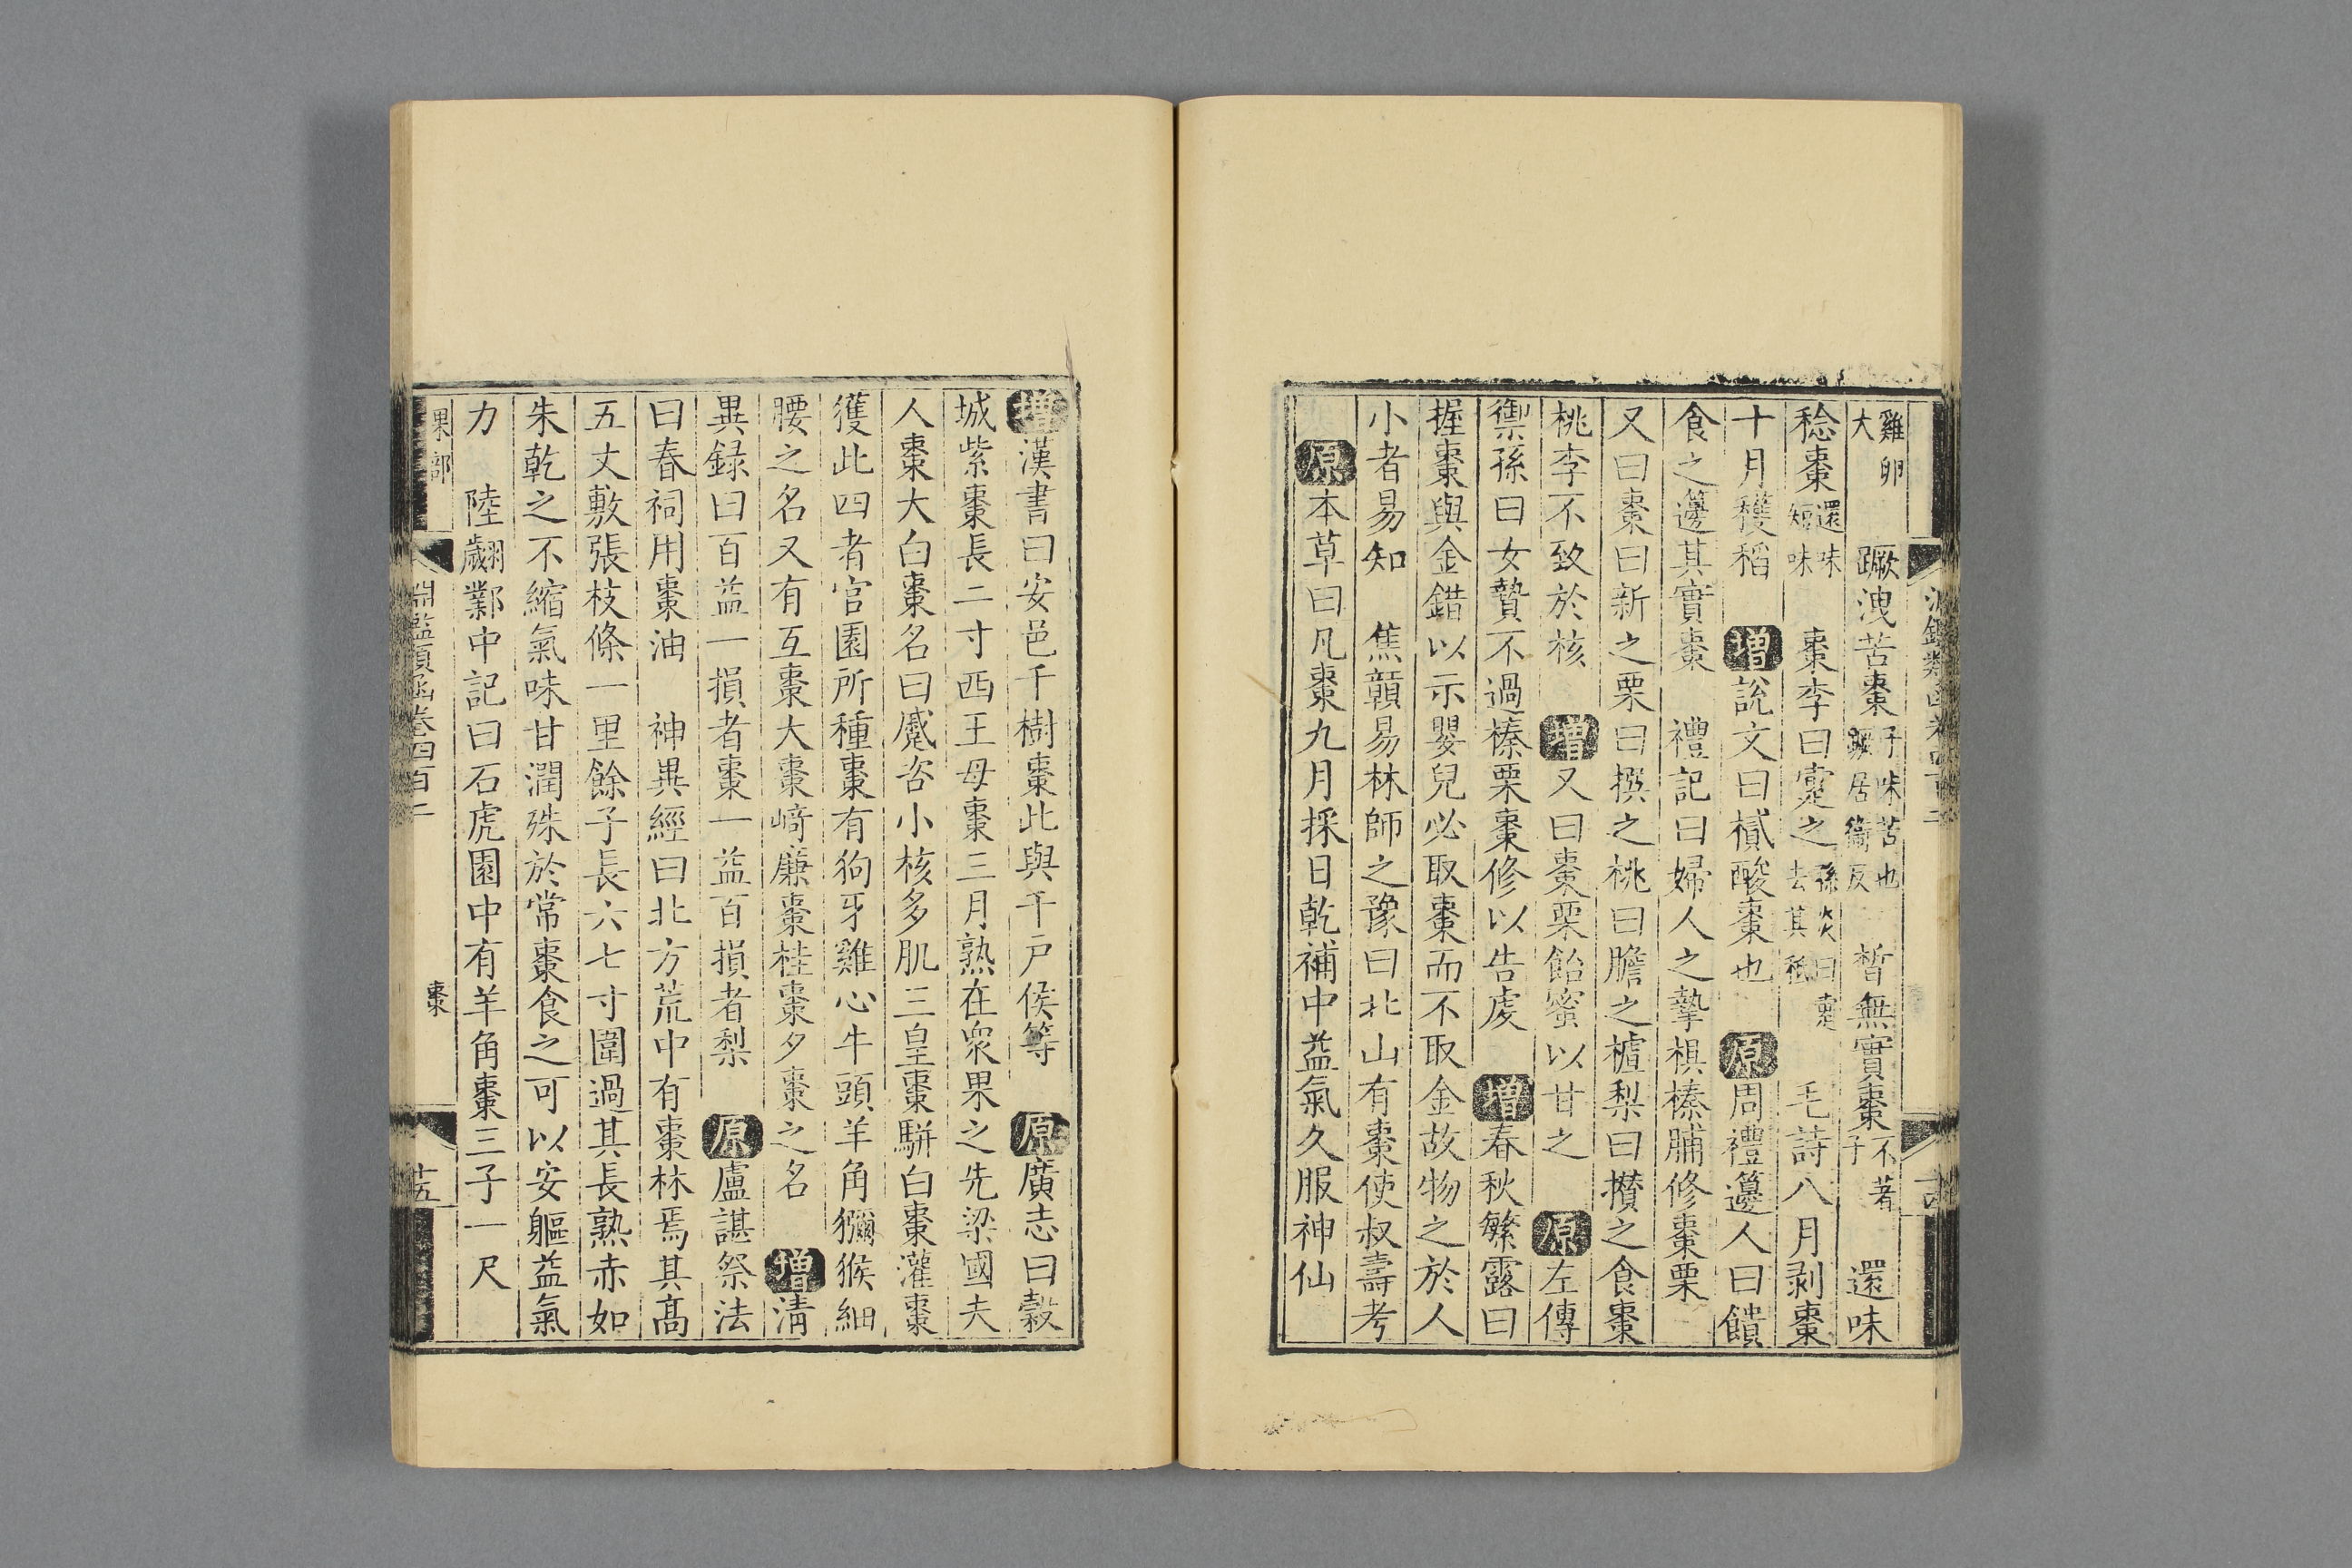 雞卵大　蹶洩苦棗子味苦也蹶居衞反　晳無實棗不著子　還味
稔棗還味短味　棗李曰疐之孫炎曰疐去其柢　毛詩八月剥棗
十月穫稻　增說文曰樲酸棗也　原周禮籩人曰饋
食之籩其實棗　禮記曰婦人之摯椇榛脯修棗栗
又曰棗曰新之栗曰撰之桃曰膽之樝梨曰攢之食棗
桃李不致於核　增又曰棗栗飴蜜以甘之　原左傳
禦孫曰女贄不過榛栗棗修以告虔　增春秋繁露曰
握棗與金錯以示嬰兒必取棗而不取金故物之於人
小者易知　焦贛易林師之豫曰北山有棗使叔壽考
原本草曰凡棗九月採日乾補中益氣久服神仙
增漢書曰安邑千樹棗此與千戶侯等　原廣志曰穀
城紫棗長二寸西王母棗三月熟在衆果之先梁國夫
人棗大白棗名曰蹙咨小核多肌三皇棗駢白棗灌棗
獲此四者官園所種棗有狗牙雞心牛頭羊角獼猴細
腰之名又有互棗大棗崎廉棗桂棗夕棗之名　增淸
異録曰百益一損者棗一益百損者梨　原盧諶祭法
曰春祠用棗油　神異經曰北方荒中有棗林焉其髙
五丈敷張枝條一里餘子長六七寸圍過其長熟赤如
朱乾之不縮氣味甘潤殊於常棗食之可以安軀益氣
力　陸翽鄴中記曰石虎園中有羊角棗三子一尺
果部
淵鑑類函卷四百二
棗
十五